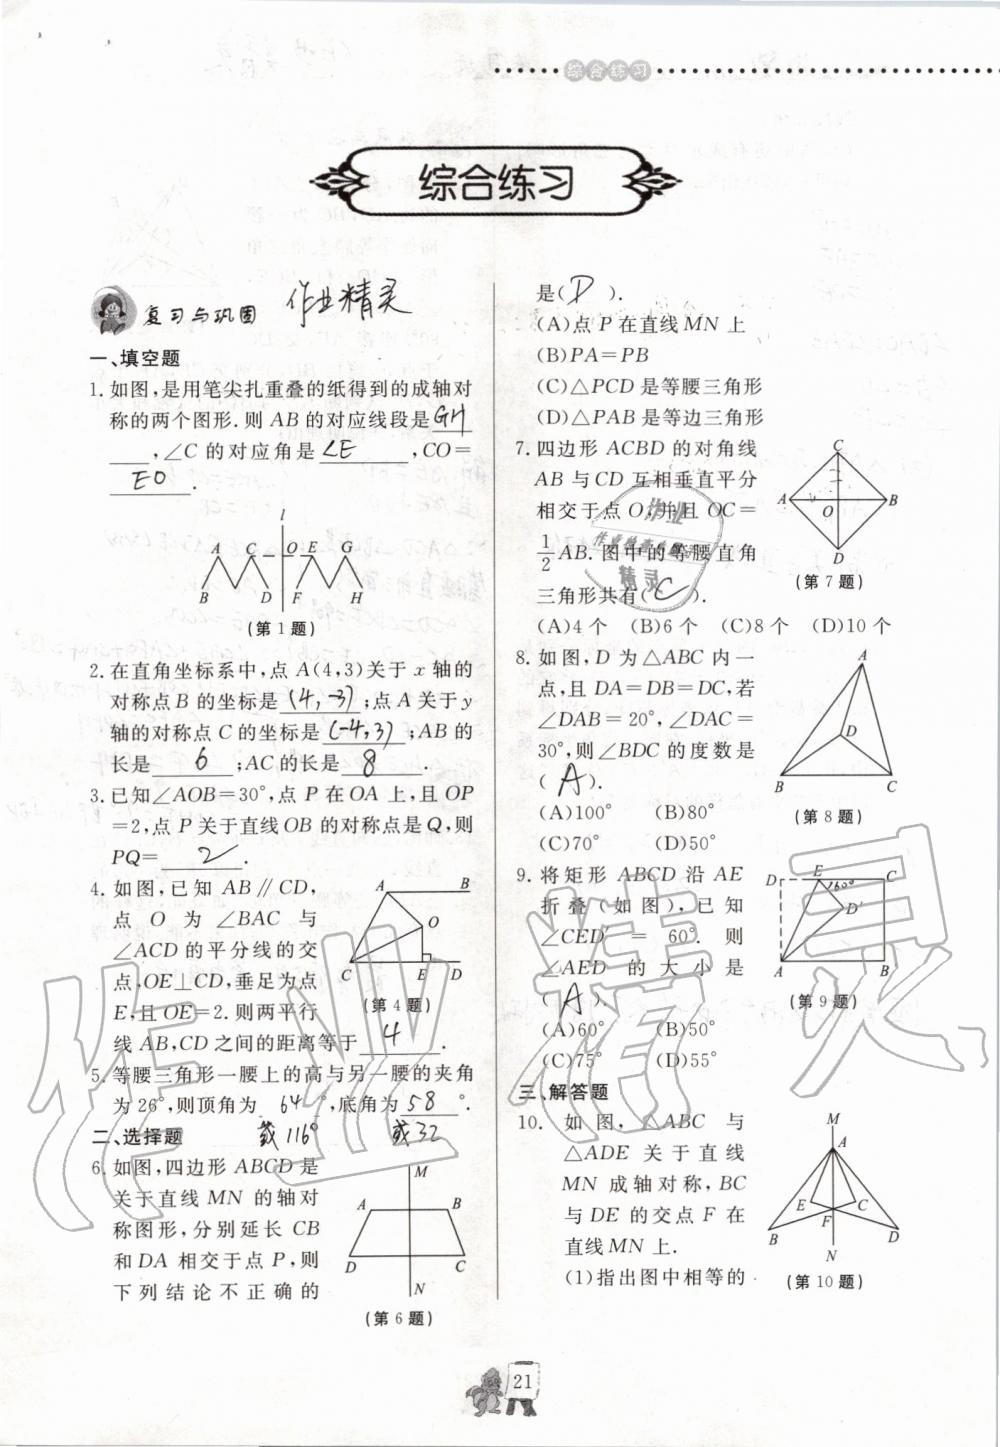 综合练习
综合练习
复习与巩固
作业精灵
一、填空题
1. 如图,是用笔尖扎重叠的纸得到的成轴对
称的两个图形.则 AB 的对应线段是 GH
,∠C 的对应角是 ∠E ,CO=
EO .
l
A C O E G
B D F H
(第 1 题)
2. 在直角坐标系中,点 A(4,3)关于 x 轴的
对称点 B 的坐标是 (4,-3) ;点 A 关于 y
轴的对称点 C 的坐标是 (-4,3) ;AB 的
长是 6 ;AC 的长是 8 .
3. 已知∠AOB=30°,点 P 在 OA 上,且 OP
=2,点 P 关于直线 OB 的对称点是 Q,则
PQ= 2 .
4. 如图,已知 AB∥CD,
点 O 为 ∠BAC 与
∠ACD 的平分线的交
点,OE⊥CD,垂足为点
E,且 OE=2.则两平行
线 AB,CD 之间的距离等于 4 .
A B
O
C E D
(第 4 题)
5. 等腰三角形一腰上的高与另一腰的夹角
为 26°,则顶角为 64 °,底角为 58 °.
或116° 或32
二、选择题
6. 如图,四边形 ABCD 是
关于直线 MN 的轴对
称图形,分别延长 CB
和 DA 相交于点 P,则
下列结论不正确的
M
A B
D C
N
(第 6 题)
是( D ).
(A)点 P 在直线 MN 上
(B)PA=PB
(C)△PCD 是等腰三角形
(D)△PAB 是等边三角形
7. 四边形 ACBD 的对角线
AB 与 CD 互相垂直平分
相交于点 O,并且 OC=
1/2 AB.图中的等腰直角
三角形共有( C ).
C
A O B
D
(第 7 题)
(A)4 个 (B)6 个 (C)8 个 (D)10 个
8. 如图,D 为 △ABC 内一
点,且 DA=DB=DC,若
∠DAB=20°,∠DAC=
30°,则∠BDC 的度数是
( A ).
(A)100° (B)80°
(C)70° (D)50°
A
D
B C
(第 8 题)
9. 将矩形 ABCD 沿 AE
折叠(如图),已知
∠CED′ = 60°. 则
∠AED 的大小是
( A ).
(A)60° (B)50°
(C)75° (D)55°
D E C
60°
D′
A B
(第 9 题)
三、解答题
10. 如图,△ABC 与
△ADE 关于直线
MN 成轴对称,BC
与 DE 的交点 F 在
直线 MN 上.
(1)指出图中相等的
M
A
E C
B F D
N
(第 10 题)
21
作业
精灵
作业精灵